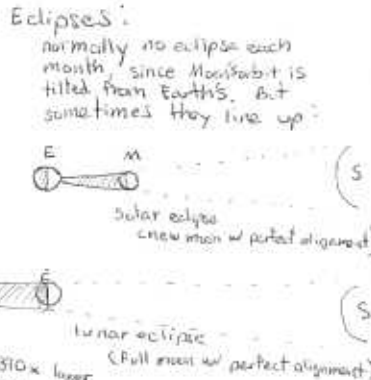 Eclipses:
normally no eclipse each
month, since Moon's orbit is
tilted from Earth's. But
sometimes they line up:
E M
S
Solar eclipse
(new moon w/ perfect alignment)
E
S
Lunar eclipse
(Full moon w/ perfect alignment)